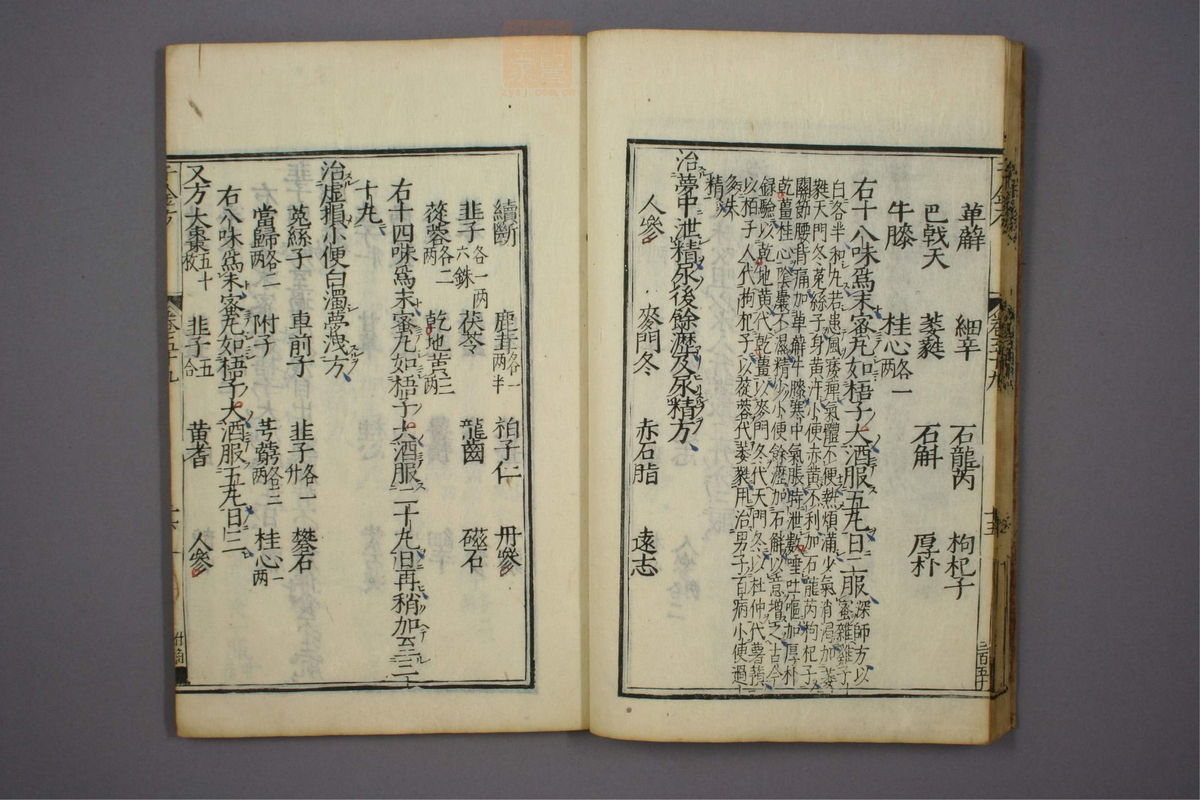 萆薢　細辛　石龍芮　枸杞子
巴戟天　萎蕤　石斛　厚朴
牛膝　桂心各一兩
右十八味爲末蜜丸如梧子大酒服五丸日二服深師方以蜜雜雞子
白各半和丸若患風痿痺氣體不便熱煩滿少氣消渴加萎
蕤天門冬菟絲子身黃汗小便赤黃不利加石龍芮枸杞子
關節腰背痛加萆薢牛膝寒中氣脹時泄數唾吐嘔加厚朴
乾薑桂心陰囊下濕精少小便餘瀝加石斛以意增之古今
錄驗以乾地黃代乾薑以麥門冬代天門冬以杜仲代薯蕷
以柏子人代枸杞子以蓯蓉代萎蕤用治男子百病小便過
精
治夢中泄精尿後餘瀝及尿精方
人參　麥門冬　赤石脂　遠志
續斷　鹿茸各一兩半　柏子仁　丹參
韭子各一兩六銖　茯苓　龍齒　磁石
蓯蓉各二兩　乾地黃三兩
右十四味爲末蜜丸如梧子大酒服二十丸日再稍加至三十
丸
治虛損小便白濁夢洩方
菟絲子　車前子　韭子各一升　礬石
當歸各二兩　附子　芎藭各三兩　桂心一兩
右八味爲末蜜丸如梧子大酒服五丸日三
又方大棗五十枚　韭子五合　黃耆　人參
千金方
卷五十九